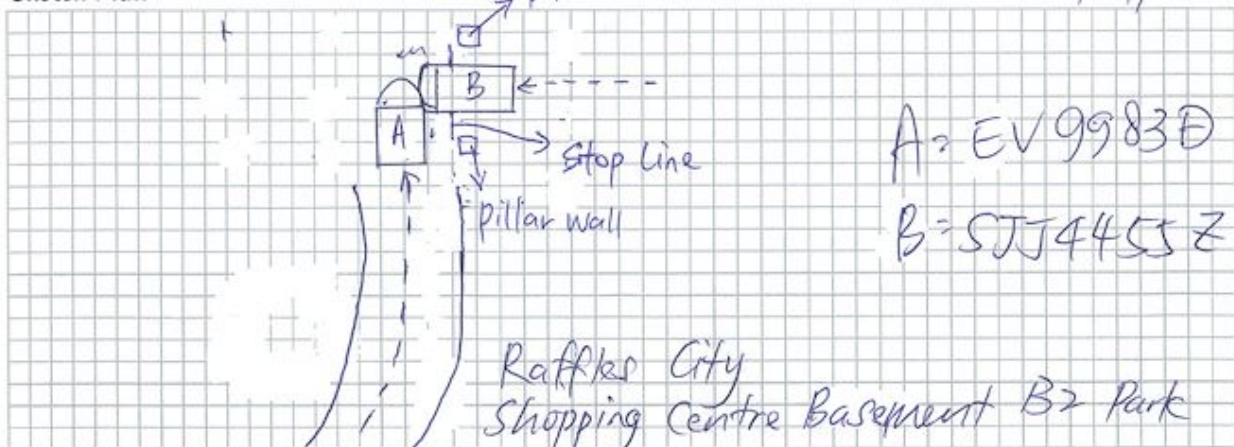 B
A
Stop Line
pillar wall
A = EV9983D
B = SJJ4455Z
Raffles City
Shopping Centre Basement B2 Park